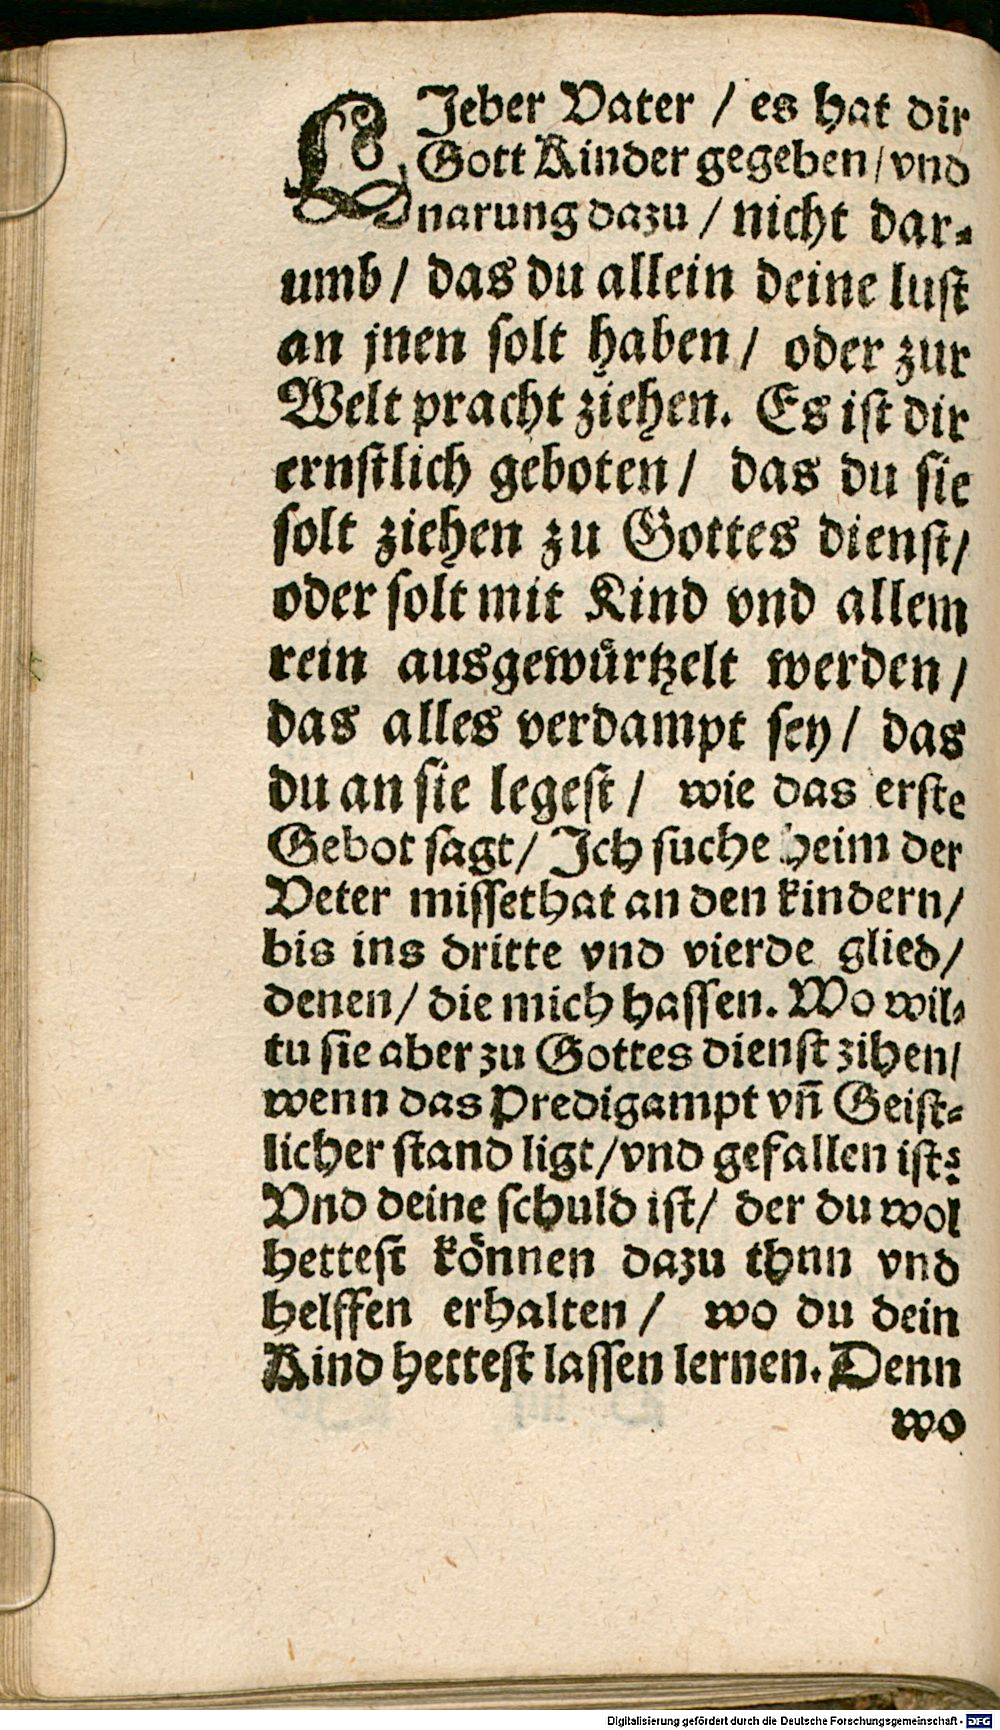 LJeber Vater / es hat dir
Gott Kinder gegeben / vnd
narung dazu / nicht dar⸗
umb / das du allein deine lust
an jnen solt haben / oder zur
Welt pracht ziehen. Es ist dir
ernstlich geboten / das du sie
solt ziehen zu Gottes dienst /
oder solt mit Kind vnd allem
rein ausgewürtzelt werden /
das alles verdampt sey / das
du an sie legest / wie das erste
Gebot sagt / Ich suche heim der
Veter missethat an den kindern /
bis ins dritte vnd vierde glied /
denen / die mich hassen. Wo wil⸗
tu sie aber zu Gottes dienst zihen /
wenn das Predigampt vñ Geist⸗
licher stand ligt / vnd gefallen ist?
Vnd deine schuld ist / der du wol
hettest können dazu thnn vnd
helffen erhalten / wo du dein
Kind hettest lassen lernen. Denn
wo
Digitalisierung gefördert durch die Deutsche Forschungsgemeinschaft - DFG